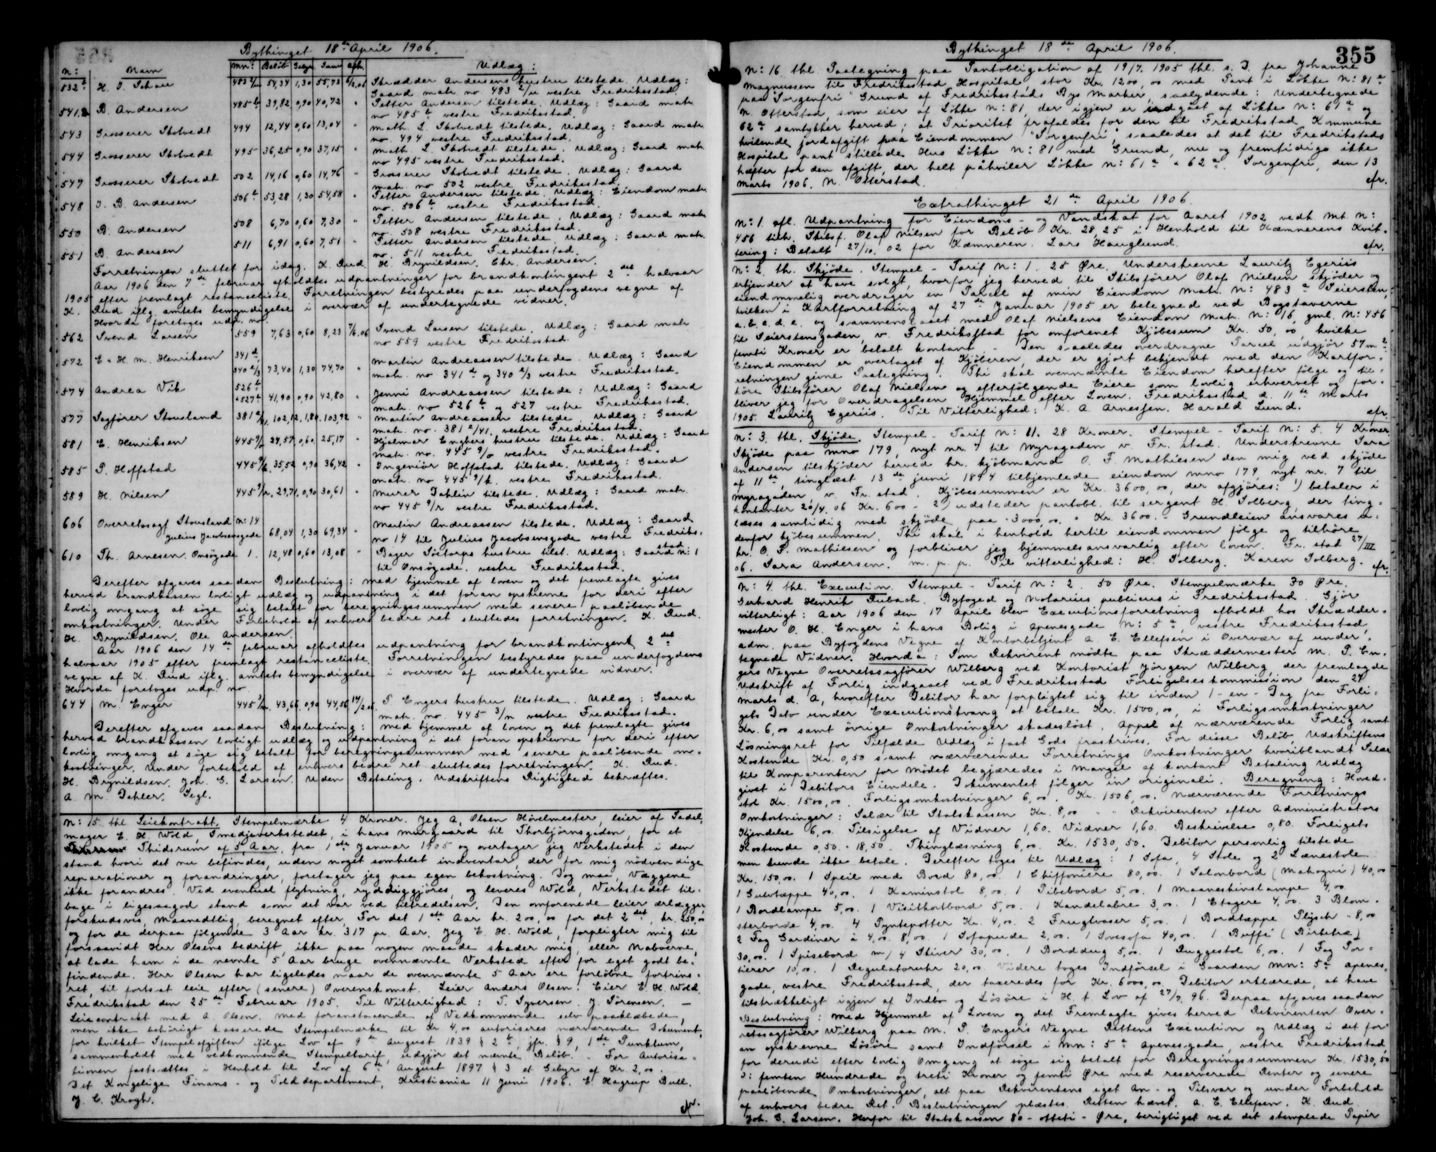 Bythinget 18de April 1906.
N: Navn mn: Beløb Gebyr Sum Afh. Udlæg:
532a H. J. Schou 54,34 1,30 55,73 Skrædder Andersens hustru tilstede. Udlæg:
Gaard mat. no 483 vestre Fredrikstad.
541,2 B. Andersen 485b 39,82 0,90 40,72 " Petter Andersen tilstede. Udlæg: Gaard mat.
no 485b vestre Fredrikstad.
543 Grosserer Stolvedt 494 12,44 0,60 13,04 " Math. L. Stolvedt tilstede. Udlæg: Gaard mat.
no 494 vestre Fredrikstad.
544 Grosserer Stolvedt 495 36,25 0,90 37,15 " Math. L. Stolvedt tilstede. Udlæg: Gaard mat.
no 495 vestre Fredrikstad.
547 Grosserer Stolvedt 502 14,16 0,60 14,76 " Grosserer Stolvedt tilstede. Udlæg: Gaard
mat. no 502 vestre Fredrikstad.
548 J. B. Andersen 506b 53,28 1,30 54,58 " Petter Andersen tilstede. Udlæg: Eiendom mat.
no. 506b vestre Fredrikstad.
550 B. Andersen 508 6,70 0,60 7,30 " Petter Andersen tilstede. Udlæg: Gaard mat.
no 508 vestre Fredrikstad.
551 B. Andersen 511 6,91 0,60 7,51 " Petter Andersen tilstede. Udlæg: Gaard mat.
no. 511 vestre Fredrikstad.
Forretningen sluttet for idag. K. Rud. H. Brynildsen. Chr. Andersen.
Aar 1906 den 7de februar afholdtes udpantninger for brandkontingent 2det halvaar
1905 efter fremlagt restanceliste. Forretningen bestyredes paa underfogdens vegne af
K. Rud iflg. amtets bemyndigelse i overvær af undertegnede vidner.
Hvorda foretoges udp. no
562 Svend Larsen 559 7,63 0,60 8,23 7/2.06 Svend Larsen tilstede. Udlæg: Gaard mat
no 559 vestre Fredrikstad.
572 E. H. M. Henriksen 341a, 340a/3 73,40 1,30 74,70 " Martin Andreassen tilstede. Udlæg: Gaard
mat. no 341a og 340a/3 vestre Fredrikstad.
574 Andrea Vik 526b + 527b 41,90 0,90 42,80 " Jenni Andreassen tilstede: Udlæg: Gaard
mat. no 526b og 527 vestre Fredrikstad.
577 Sagfører Stousland 102,12 1,80 103,92 " Martin Andreassen tilstede. Udlæg: Gaard
mat. no. 381 a/41, vestre Fredrikstad.
581 E. Henriksen 24,57 0,60 25,17 " Hjelmar Engers hustru tilstede. Udlæg: Gaard
mat. no. 445 vestre Fredrikstad.
585 S. Hoffstad 35,52 0,90 36,42 " Ingeniør Hoffstad tilstede. Udlæg: Gaard
mat. no 445 vestre Fredrikstad.
589 H. Nilsen 29,71 0,90 30,61 " Murer Dahlin tilstede. Udlæg: Gaard mat.
no 445 vestre Fredrikstad.
606 Overretssagf. Stousland No: 14 Julius Jacobsensgade 68,04 1,30 69,34 " Martin Andreassen tilstede. Udlæg: Gaard
no 14 til Julius Jacobsensgade vestre Fredriks-
stad.
610 Th. Arnesen, Onsøgade 1. 12,48 0,60 13,08 " Bager Sætorps hustru tilst. Udlæg: Gaard N: 1
til Onsøgade. vestre Fredrikstad.
Derefter afgaves saadan Beslutning: med hjemmel af loven og det fremlagte gives
herved Brandkassen lovligt udlæg og udpantning i det foran opskrevne for deri efter
lovlig omgang at søge sig betalt for beregningssummen med senere paaløbende
omkostninger. Under Forbehold af enhvers bedre ret sluttedes forretningen. K. Rud.
H. Brynildsen. Ole Andersen.
Aar 1906 den 14de februar afholdtes udpantning for brandkontingent 2det
halvaar 1905 efter fremlagt restanceliste. Forretningen bestyredes paa underfogdens
vegne af K. Rud iflg. amtets bemyndigelse i overvær af undertegnede vidner.
Hvorda foretoges udp. no
644 M. Enger 43,66 0,90 44,56 14/2.06 S. Engers hustru tilstede. Udlæg: Gaard
mat. no. 445 vestre Fredrikstad.
Derefter afgaves saadan Beslutning: med hjemmel af loven og det fremlagte gives
herved brandkassen lovligt udlæg og udpantning i det foran opskrevne for deri efter
lovlig omgang at søge sig betalt for beregningssummen med senere paaløbende om-
kostninger. Under forbehold af enhvers bedre ret sluttedes forretningen. K. Rud.
H. Brynildsen. Joh. G. Larsen. Uden Betaling. Udskriftens Rigtighed bekræftes.
A. M. Dahler. Segl.
N: 15. thl. Leiekontrakt. Stempelmærke 4 Kroner. Jeg A. Olsen Hovelmester, leier af Sadel-
mager E. H. Wold Smedjeverkstedet, i hans murgaard til Thorbjørnsgaden, for et
Thidsrum af 5 Aar, fra 1de Januar 1905 og overtager jeg Verkstedet i den
stand hvori det nu befindes, uden noget somhelst inventar, der for mig nødvendige
reparationer og forandringer, foretager jeg paa egen bekostning. Dog maa, Væggene
ikke forandres. Ved eventuel flytning, ryddiggjøres, og leveres Wold, Verkstedet til-
bage i ligesaagod stand som det var ved tiltrædelsen. Den omforenede leier ærlægges
forskudsvis, Maanedtlig, beregnet efter. For det 1de Aar kr. 200,00 for det 2det, kr. 250,00
og for de derpaa følgende 3 Aar kr. 317 pr. Aar. Jeg E. H. Wold, forpligter mig til
forsaavidt Herr Olsens bedrift, ikke paa nogen maade skader mig, eller Naboerne
at lade ham i de nevnte 5 Aar bruge ovennævnte Verksted efter for eget godt be-
findende. Herr Olsen har ligeledes naar de ovennævnte 5 Aar ere forløbne fortrins-
ret til fortsat leie efter (senere) Overenskomst. Leier Anders Olsen. Eier E. H. Wold.
Fredrikstad den 25de Februar 1905. Til Vitterlighed: T. Syversen. J. Sørensen. —
Leiekontrakt med A. Olsen. Med foranstaaende af Vedkommende selv paaklæbede,
men ikke behørigt kasserede Stempelmærke til Kr 4,00 autoriseres nærværende Dokument,
for hvilket Stempelafgiften ifølge Lov af 9de August 1839 § 2b, jfr. § 9, 1ste Punktum,
sammenholdt med vedkommende Stempeltarif, udgjør det nævnte Beløb. For Autorisa-
tionen fastsættes i Henhold til Lov af 6te August 1897 § 3 et Gebyr af Kr. 2,00.
Det Kongelige Finans- og Tolddepartement, Kristiania 11 Juni 1906. E. Hagrup Bull.
J. C. Krogh.
Bythinget 18de April 1906.
355
N: 16 thl. Paategning paa Pantobligation af 19/7. 1905 thl. s. D. fra Johanne
Magnussen til Fredrikstad Hospital, stor Kr. 1200.00 med Pant i Løkke N: 81a
paa "Sorgenfri" Grund af Fredrikstads Bys Marker saalydende: Undertegnede
N. Otterstad, som eier af Løkke N: 81, der igjen er indgaat af Løkke N: 61a og
62a samtykker herved, at Prioritet frafaldes for den til Fredrikstad Kommune
hvilende jordafgift paa Eiendommen "Sorgenfri" saaledes at det til Fredrikstads
Hospital pant stillede Hus Løkke N: 81 med Grund, nu og fremtidige ikke
hæfter for den afgift, der helt paahviler Løkke N: 61a & 62a. Sorgenfri, den 13
Marts 1906. N. Otterstad. efr.
Extrathinget 21de April 1906.
N: 1. afl. Udpantning for Eiendoms- og Vandskat for Aaret 1902 vedk Mt. N:
456 tilh. Skibsf. Olaf Nilsen for Beløb Kr. 28.25 i Henhold til Kæmnerens Kvit-
tering: Betalt 27/10. 02 for Kæmneren. Lars Hauglund. efr.
N: 2. th. Skjøde. Stempel-Tarif N: 1. 25 Øre. Underskrevne Lauritz Egeriis
erkjender at have solgt, hvorfor jeg herved til Skibsfører Olaf Nielsen skjøder og
eiendommelig overdrager en Parcel af min Eiendom Matr. N: 483a Feiersten,
hvilken i Kartforretning af 27de Januar 1905 er betegnede ved Bogstaverne
a. b. c. d. e. og sammenføiet med Olaf Nielsens Eiendom Matr. N: 16, gml. N: 456
til Feierstensgaden, v. Fredrikstad for omforenet Kjøbesum Kr. 50,00 hvilke
femti Kroner er betalt kontant. — Den saaledes overdragne Parcel udgjør 57 m2.
Eiendommen er overtaget af Kjøberen, der er gjort bekjendt med den Kartfor-
retningen givne Paategning. Thi skal ovennævnte Eiendom herefter følge og til-
høre Skibsfører Olaf Nielsen og efterfølgende Eiere som lovlig erhvervet og for-
bliver jeg for Overdragelsen Hjemmel efter Loven. Fredrikstad d. 11te Marts
1905 Lauritz Egeriis. Til Vitterlighed: K. A. Arnessen. Harald Lund. efr.
N: 3. thl. Skjøde. Stempel-Tarif N: 11. 28 Kroner. Stempel-Tarif N: 5. 4 Kroner
Skjøde paa mno 179, nyt nr. 7 til Myragaden v. Fr.stad. Underskrevne Sara
Andersen tilskjøder herved hr. kjøbmand O. F. Mathiesen den mig ved skjøde
af 11te, tinglæst 13de juni 1894 tilhjemlede eiendom mno 179 nyt nr. 7 til
Myragaden, v. Fr.stad. Kjøbesummen er Kr. 3600,00, der afgjøres: 1) betaler i
kontanter 20/4. 06 Kr. 600 - 2) udsteder pantobl. til sergent H. Solberg, der ting-
læses samtidig med skjøde paa " 3000,00. = Kr. 3600. Grundleien ansvares u-
denfor kjøbesummen. Thi skal i henhold hertil eiendommen følge og tilhøre
hr. O. F. Mathiesen og forbliver jeg hjemmelsansvarlig efter loven. Fr.stad 27/III
06. Sara Andersen. m. p. p. Til vitterlighed: H. Solberg. Karen Solberg. efr.
N: 4. thl. Execution. Stempel-Tarif N: 2. 50 Øre. Stempelmærke 30 Øre.
Gerhard Henrik Reibach Byfoged og Notarius publicus i Fredrikstad Gjør
vitterligt: Aar 1906 den 17 April blev Executionsforretning afholdt hos Skrædder-
mester O. H. Enger i hans Bolig i Apenesgade N: 5a, vestre Fredrikstad
adm. paa Byfogdens Vegne af Kontorbetjent A. E. Ellefsen i Overvær af under-
tegnede Vidner. Hvorda: Som Rekvirent mødte paa Skræddermester M. P. En-
gers Vegne Overretssagfører Wilberg ved Kontorist Jørgen Wilberg, der fremlagde
Udskrift af Forlig indgaaet ved Fredrikstad Forligelseskommission den 27
Marts d. A, hvorefter Debitor har forpligtet sig til inden 1-en-Dag fra Forli-
gets Dato under Executionstvang at betale Kr. 1500,00, i Forligsomkostninger
Kr. 6,00 samt øvrige Omkostninger skadesløst. Appel af nærværende Forlig samt
Løsningsret for Tilfælde Udlæg i fast Gods fraskrives. For disse Beløb, Udskriftens
Kostende Kr. 0,50 samt nærværende Forretnings Omkostninger hvoriblandt Salær
til Komparenten for mødet begjæredes i Mangel af kontant Betaling Udlæg
givet i Debitors Eiendele. Dokumentet følger in originali. Beregning: Hoved-
stol Kr. 1500,00. Forligsomkostninger 6,00. Kr. 1506,00. Nærværende Forretnings
Omkostninger: Salær til Statskassen Kr. 8,00 - " - Rekvirenten efter Administrators
Kjendelse 6,00 Tilsigelse af Vidner 1,60. Vidner 1,60. Beskrivelse 0,80. Forligets
Kostende 0,50 - 18,50. Thinglæsning 6,00. Kr. 1530,50. Debitor personlig tilstede
men kunde ikke betale. Derefter toges til Udlæg: 1 Sofa, 4 Stole og 2 Lænestole
Kr. 150,00. 1 Speil med Bord 80,00. 1 Chiffoniere 80,00. 1 Salonbord (Mahogni) 40,00
1 Gulvtæppe 40,00. 1 Kaminstol 8,00. 1 Pilebord 5,00. 1 Maaneskinslampe 4,00
1 Bordlampe 5,00. 1 Visitkortbord 5,00. 1 Kandelabre 3,00. 1 Etagere 4,00. 3 Blom-
sterborde 4,00. 4 Pyntepotter Kr. 4,00. 2 Frugtvaser 5,00. 1 Bordtæppe Plysch - 8,00
2 Fag Gardiner à 4,00. 8,00. 1 Sofapude 2,00. 1 Sovesofa 40,00. 1 Buffé (Birketræ)
30,00. 1 Spisebord m/ 4 Skiver 30,00. 1 Borddug 5,00. 1 Ruggestol 6,00. 1 Fag Por-
tierer 10,00. 1 Regulatoruhr 20,00. Videre toges Indførsel i Gaarden Mn: 5a Apenes-
gade, vestre Fredrikstad, der taxeredes for Kr. 6000,00. Debitor erklærede, at have
tilstrækkeligt igjen af Indbo og Løsøre i H. t. Lov af 29/7. 96. Derpaa afgaves saadan
Beslutning: Med Hjemmel af Loven og det Fremlagte gives herved Rekvirenten Over-
retssagfører Wilberg paa M. P. Engers Vegne Rettens Execution og Udlæg i det for-
an opskrevne Løsøre samt Indførsel i Mn: 5a Apenesgade, vestre Fredrikstad
for derudi efter lovlig Omgang at søge sig betalt for Beregningssummen Kr. 1530,50
ɔ: femten Hundrede og treti Kroner og femti Øre med reserverede Renter og senere
paaløbende Omkostninger, alt paa Rekvirentens eget An- og Tilsvar og under Forbehold
af enhvers bedre Ret. Beslutningen oplæstes. Retten hævet. A. E. Ellefsen. K. Rud
Joh. G. Larsen. Herfor til Statskassen 80-otteti-Øre, berigtiget ved det stemplede Papir